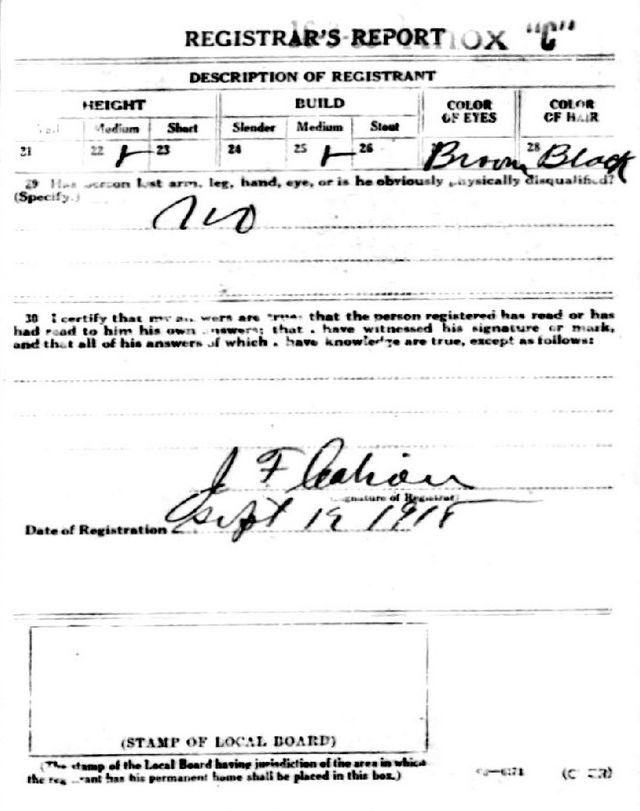 REGISTRAR'S REPORT
"C"
DESCRIPTION OF REGISTRANT
HEIGHT BUILD COLOR OF EYES COLOR OF HAIR
Medium Short Slender Medium Stout
21 22 23 24 25 26 Brown 28 Black
29 Has person lost arm, leg, hand, eye, or is he obviously physically disqualified?
(Specify.)
No
30 I certify that my answers are true; that the person registered has read or has
had read to him his own answers; that I have witnessed his signature or mark,
and that all of his answers of which I have knowledge are true, except as follows:
J F
Signature of Registrar
Date of Registration Sept 12 1918
(STAMP OF LOCAL BOARD)
(The stamp of the Local Board having jurisdiction of the area in which
the registrant has his permanent home shall be placed in this box.)